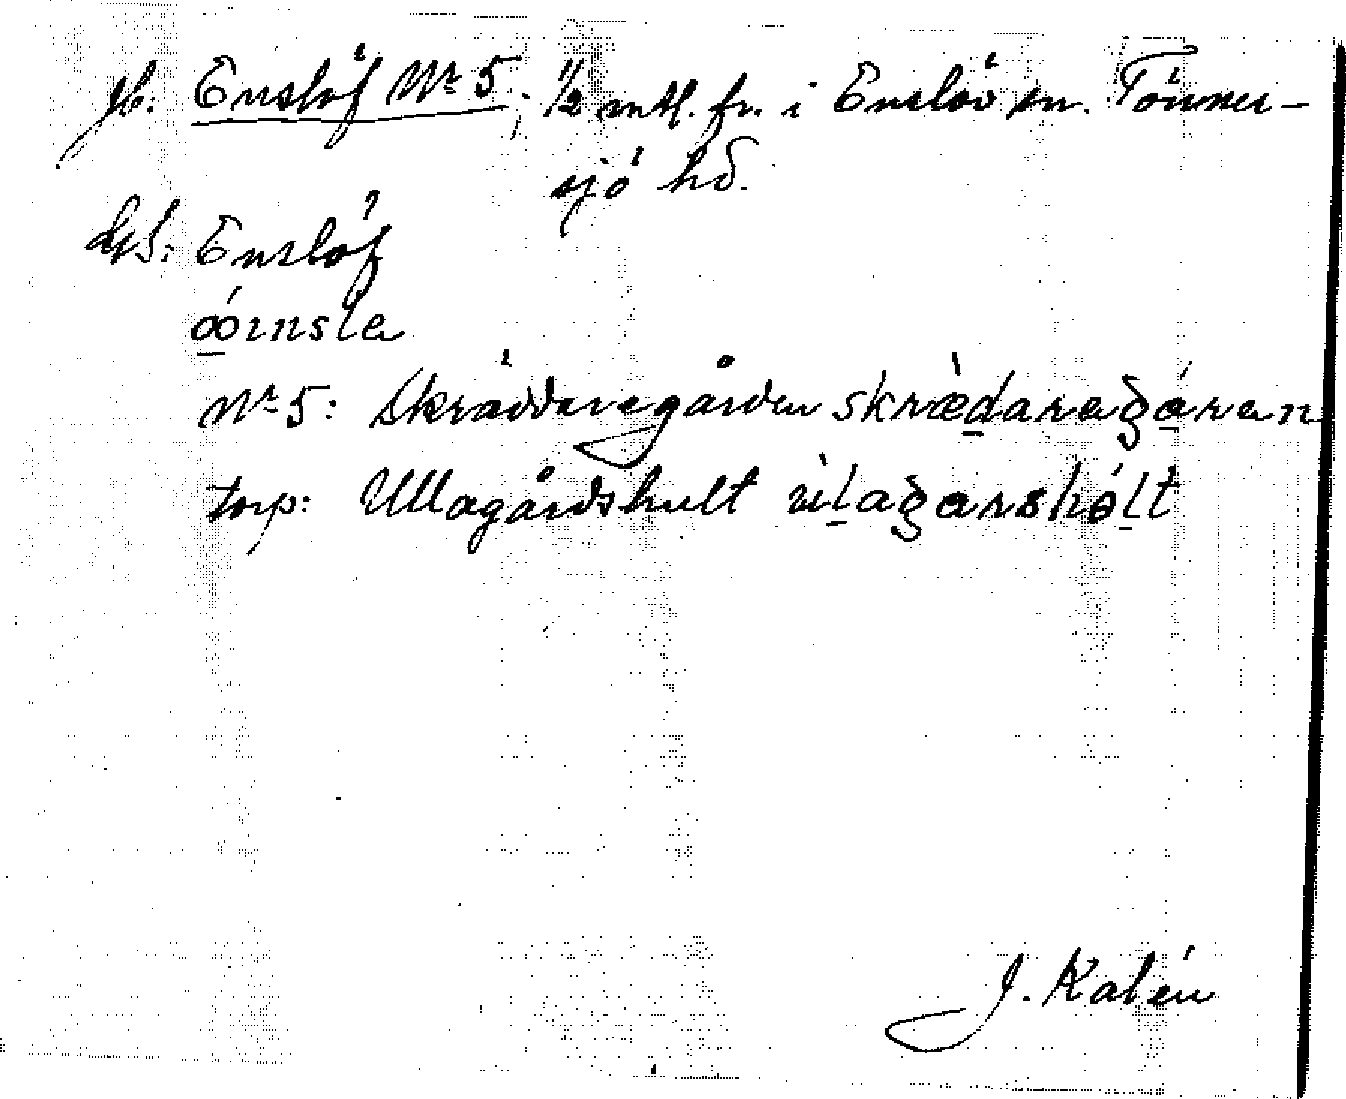 jb: Enslöf Nr 5; 1/2 mtl. fr. i Enslöv sn. Tönner-
sjö hd.
Enslöf
Nr 5: Skräddaregården skrædaragáran
torp: Ullagårdshult ùlagarshólt
J. Kalén